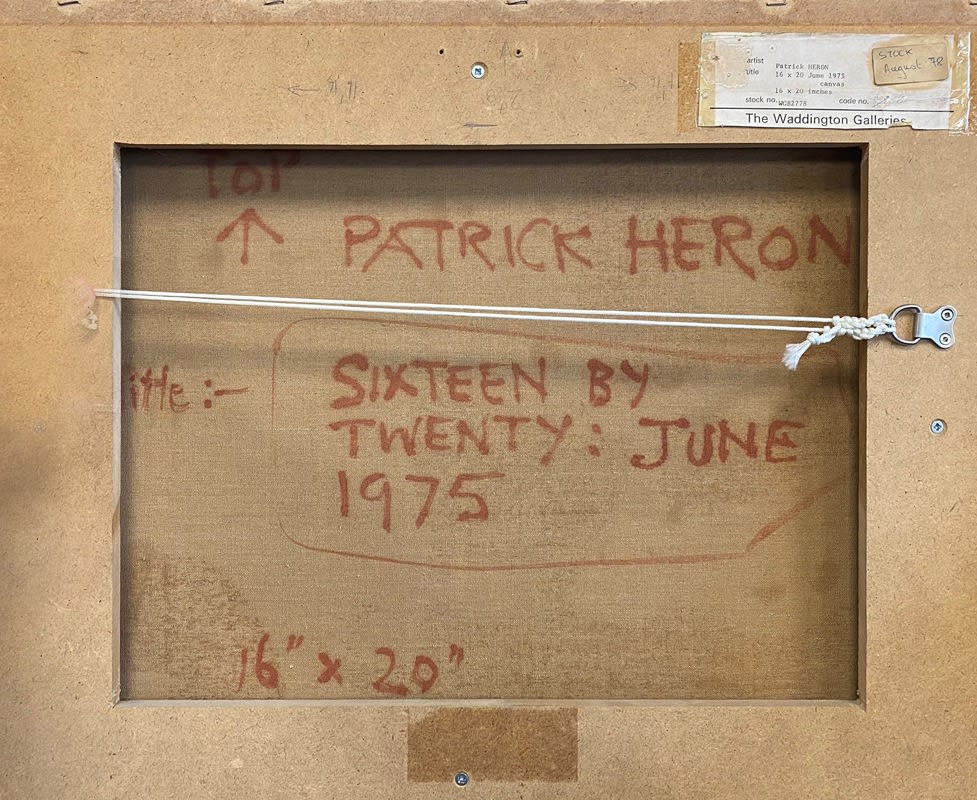 artist Patrick HERON
title 16 x 20 June 1975
canvas
16 x 20 inches
stock no. WGB2778 code no.
The Waddington Galleries
STOCK
August 78
TOP
PATRICK HERON
itle :-
SIXTEEN BY
TWENTY: JUNE
1975
16" x 20"